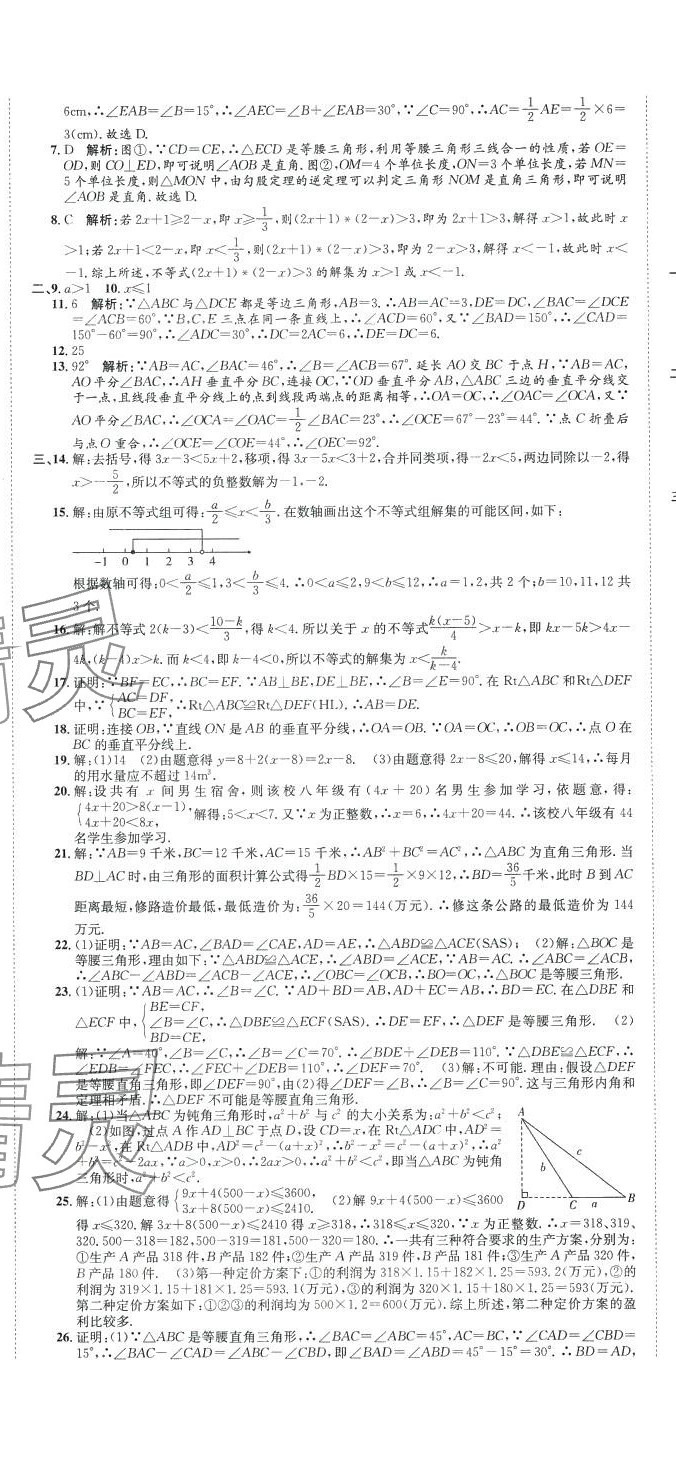 6cm,∴∠EAB=∠B=15°,∴∠AEC=∠B+∠EAB=30°,∵∠C=90°,∴AC=1/2AE=1/2×6=
3(cm).故选D.
7. D 解析:图①,∵CD=CE,∴△ECD是等腰三角形,利用等腰三角形三线合一的性质,若OE=
OD,则CO⊥ED,即可说明∠AOB是直角.图②,OM=4个单位长度,ON=3个单位长度,若MN=
5个单位长度,则△MON中,由勾股定理的逆定理可以判定三角形NOM是直角三角形,即可说明
∠AOB是直角.故选D.
8. C 解析:若2x+1≥2-x,即x≥1/3,则(2x+1)*(2-x)>3,即为2x+1>3,解得x>1,故此时x
>1;若2x+1<2-x,即x<1/3,则(2x+1)*(2-x)>3,即为2-x>3,解得x<-1,故此时x<
-1.综上所述,不等式(2x+1)*(2-x)>3的解集为x<-1或x>1.
二、9. a>1 10. x≤1
11. 6 解析:∵△ABC与△DCE都是等边三角形,AB=3.∴AB=AC=3,DE=DC,∠BAC=∠DCE
=∠ACB=60°,∵B,C,E三点在同一条直线上,∴∠ACD=60°,又∵∠BAD=150°,∴∠CAD=
150°-60°=90°,∴∠ADC=30°,∴DC=2AC=6,∴DE=DC=6.
12. 25
13. 92° 解析:∵AB=AC,∠BAC=46°,∴∠B=∠ACB=67°.延长AO交BC于点H,∵AB=AC,
AO平分∠BAC,∴AH垂直平分BC,连接OC,∵OD垂直平分AB,△ABC三边的垂直平分线交
于一点,且线段垂直平分线上的点到线段两端点的距离相等,∴OA=OC,∴∠OAC=∠OCA,又∵
AO平分∠BAC,∴∠OCA=∠OAC=1/2∠BAC=23°,∴∠OCE=67°-23°=44°.∵点C折叠后
与点O重合,∴∠OCE=∠COE=44°,∴∠OEC=92°.
三、14. 解:去括号,得3x-3<5x+2,移项,得3x-5x<3+2,合并同类项,得-2x<5,两边同除以-2,得
x>-5/2,所以不等式的负整数解为-1,-2.
15. 解:由原不等式组可得:a/2≤x<b/3.在数轴画出这个不等式组解集的可能区间,如下:
-1 0 1 2 3 4
根据数轴可得:0<a/2≤1,3<b/3≤4.∴0<a≤2,9<b≤12,∴a=1,2,共2个;b=10,11,12共
3个.
16. 解:解不等式2(k-3)<(10-k)/3,得k<4.所以关于x的不等式k(x-5)/4>x-k,即kx-5k>4x-
4k,(k-4)x>k.而k<4,即k-4<0,所以不等式的解集为x<k/(k-4).
17. 证明:∵BF=EC,∴BC=EF.∵AB⊥BE,DE⊥BE,∴∠B=∠E=90°.在Rt△ABC和Rt△DEF
中,∵{AC=DF, BC=EF,∴Rt△ABC≌Rt△DEF(HL).∴AB=DE.
18. 证明:连接OB,∵直线ON是AB的垂直平分线,∴OA=OB.∵OA=OC,∴OB=OC,∴点O在
BC的垂直平分线上.
19. 解:(1)14 (2)由题意得y=8+2(x-8)=2x-8. (3)由题意得2x-8≤20,解得x≤14,∴每月
的用水量应不超过14m³.
20. 解:设共有x间男生宿舍,则该校八年级有(4x+20)名男生参加学习,依题意,得:
{4x+20>8(x-1), 4x+20<8x,解得:5<x<7.又∵x为正整数,∴x=6,∴4x+20=44.∴该校八年级有44
名学生参加学习.
21. 解:∵AB=9千米,BC=12千米,AC=15千米,∴AB²+BC²=AC²,∴△ABC为直角三角形.当
BD⊥AC时,由三角形的面积计算公式得1/2BD×15=1/2×9×12,∴BD=36/5千米,此时B到AC
距离最短,修路造价最低,最低造价为:36/5×20=144(万元).∴修这条公路的最低造价为144
万元.
22. (1)证明:∵AB=AC,∠BAD=∠CAE,AD=AE,∴△ABD≌△ACE(SAS); (2)解:△BOC是
等腰三角形,理由如下:∵△ABD≌△ACE,∴∠ABD=∠ACE,∵AB=AC.∴∠ABC=∠ACB,
∴∠ABC-∠ABD=∠ACB-∠ACE,∴∠OBC=∠OCB,∴BO=OC,∴△BOC是等腰三角形.
23. (1)证明:∵AB=AC,∴∠B=∠C.∵AD+BD=AB,AD+EC=AB,∴BD=EC.在△DBE和
△ECF中,{BE=CF, ∠B=∠C, BD=CE,∴△DBE≌△ECF(SAS).∴DE=EF,∴△DEF是等腰三角形. (2)
解:∵∠A=40°,∠B=∠C,∴∠B=∠C=70°.∴∠BDE+∠DEB=110°.∵△DBE≌△ECF,∴
∠EDB=∠FEC,∴∠FEC+∠DEB=110°,∴∠DEF=70°. (3)解:不可能.理由:假设△DEF
是等腰直角三角形,即∠DEF=90°,由(2)得∠DEF=∠B,∴∠B=∠C=90°.这与三角形内角和
定理相矛盾.∴△DEF不可能是等腰直角三角形.
24. 解:(1)当△ABC为钝角三角形时,a²+b²与c²的大小关系为:a²+b²<c²;
(2)如图,过点A作AD⊥BC于点D,设CD=x,在Rt△ADC中,AD²=
b²-x²,在Rt△ADB中,AD²=c²-(a+x)²,∴b²-x²=c²-(a+x)²,∴a²
+b²=c²-2ax,∵a>0,x>0,∴2ax>0,∴a²+b²<c²,即当△ABC为钝角
三角形时,a²+b²<c².
A
b
c
D
C
a
B
25. 解:(1)由题意得{9x+4(500-x)≤3600, 3x+8(500-x)≤2410. (2)解9x+4(500-x)≤3600
得x≤320.解3x+8(500-x)≤2410得x≥318,∴318≤x≤320.∵x为正整数.∴x=318、319、
320.500-318=182,500-319=181,500-320=180.∴一共有三种符合要求的生产方案,分别为:
①生产A产品318件,B产品182件;②生产A产品319件,B产品181件;③生产A产品320件,
B产品180件. (3)第一种定价方案下:①的利润为318×1.15+182×1.25=593.2(万元),②的
利润为319×1.15+181×1.25=593.1(万元),③的利润为320×1.15+180×1.25=593(万元).
第二种定价方案如下:①②③的利润均为500×1.2=600(万元).综上所述,第二种定价方案的盈
利比较多.
26. 证明:(1)∵△ABC是等腰直角三角形,∴∠BAC=∠ABC=45°,AC=BC,∵∠CAD=∠CBD=
15°,∴∠BAC-∠CAD=∠ABC-∠CBD,即∠BAD=∠ABD=45°-15°=30°.∴BD=AD,
精灵
精灵